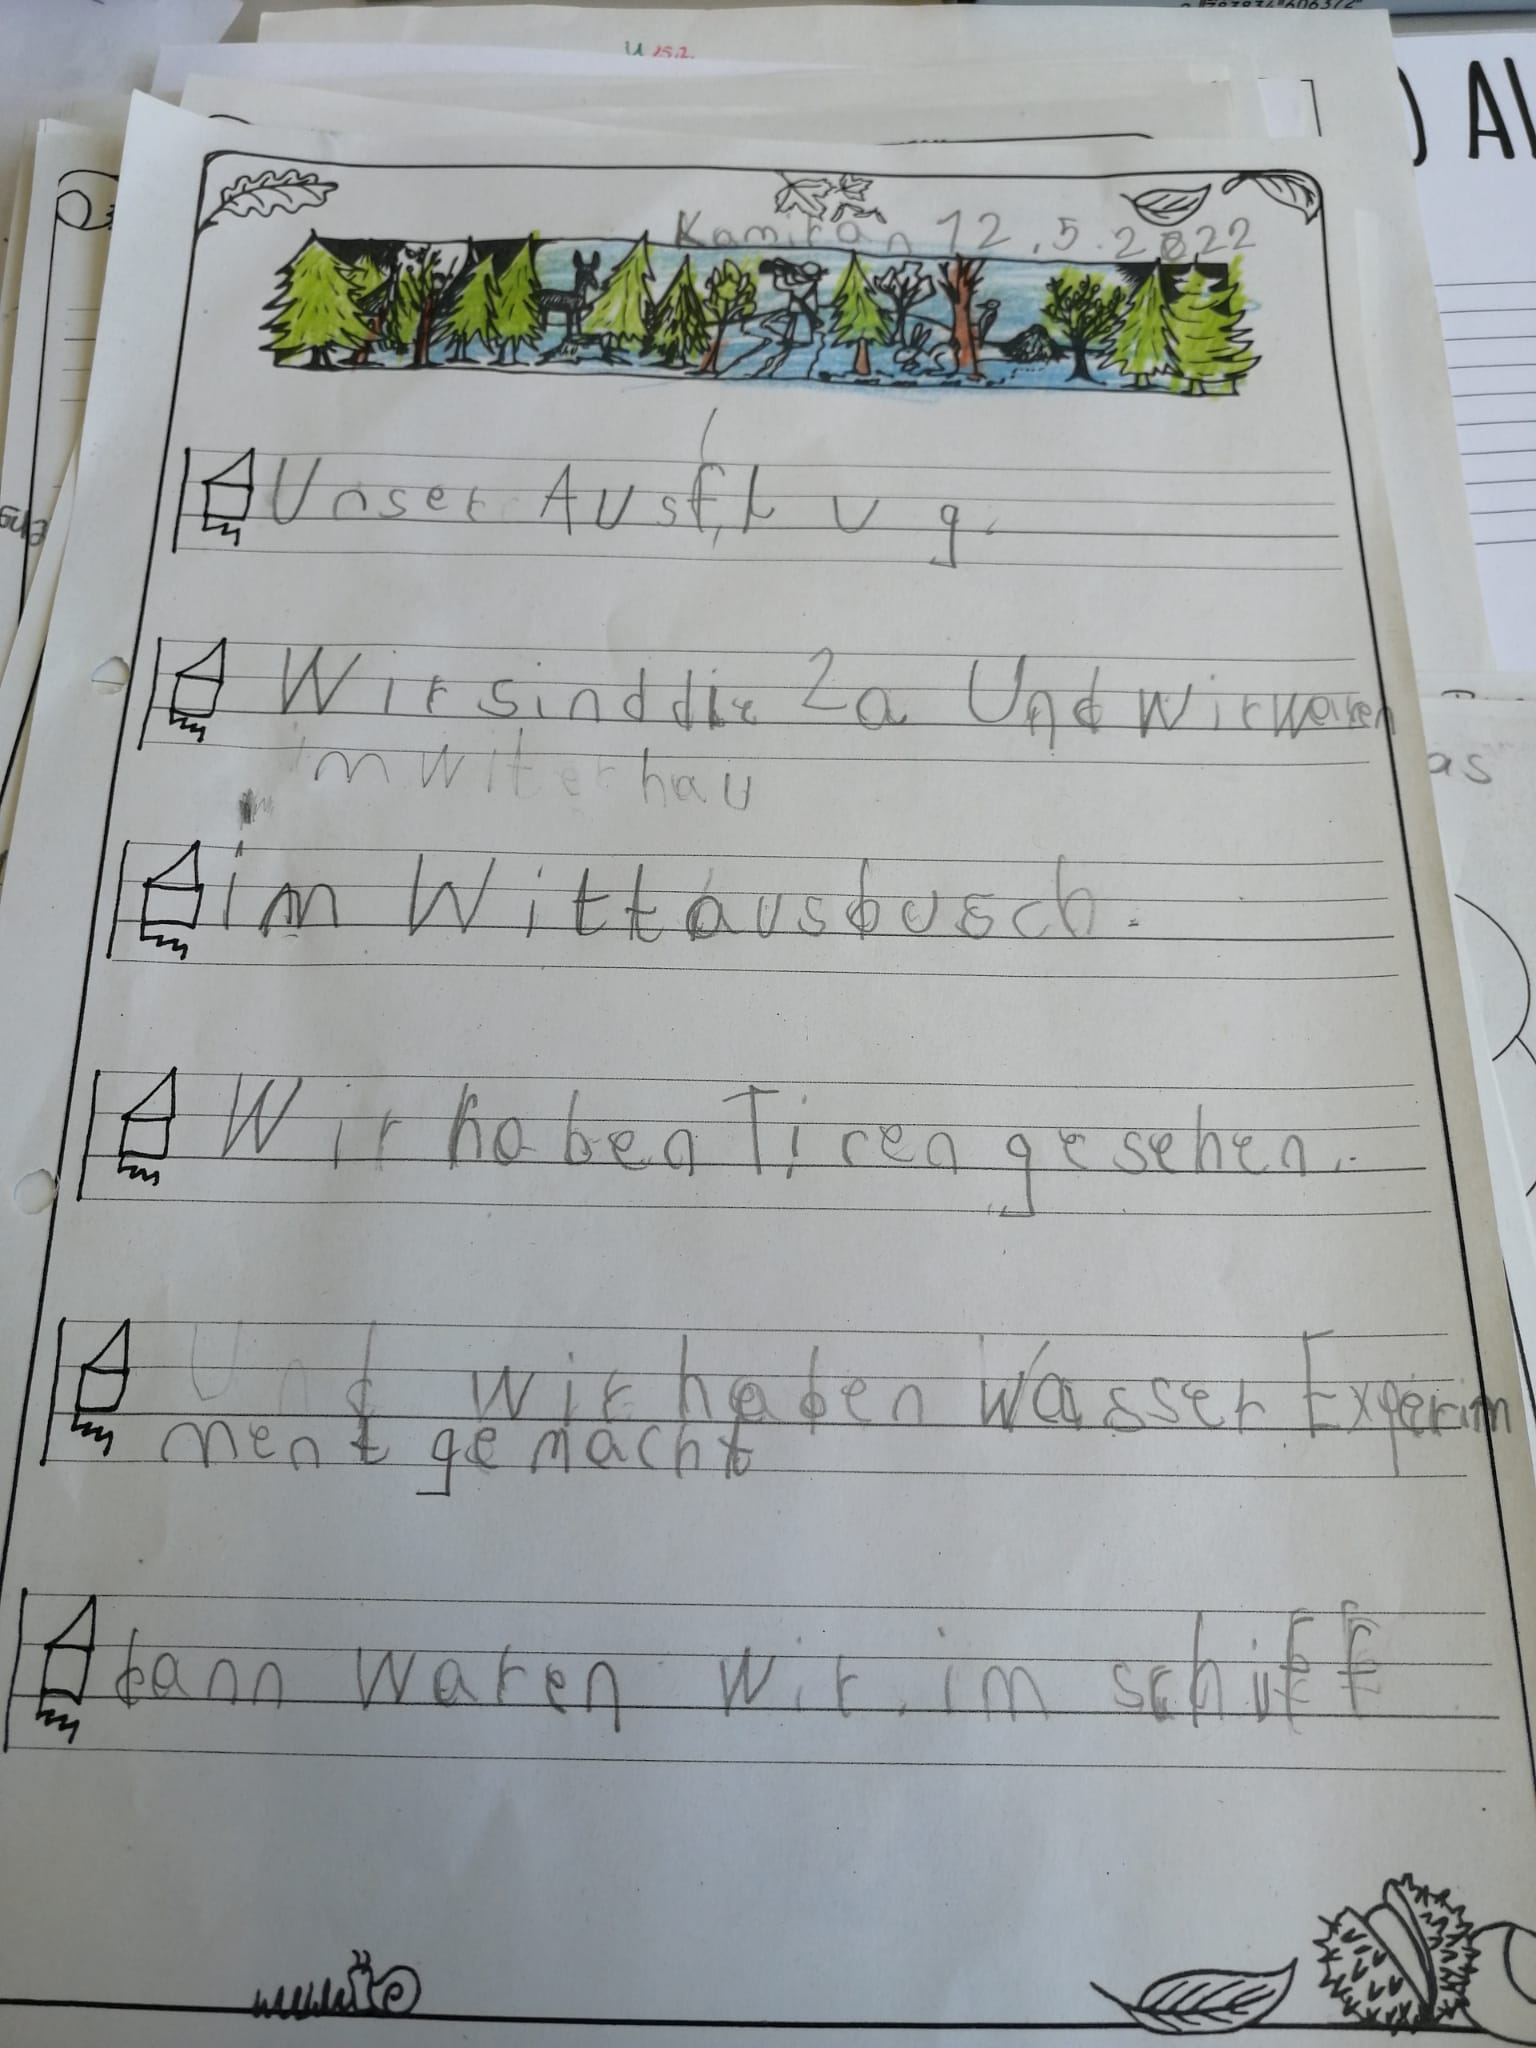 Kamiran 12.5.2022
Unser Ausflug.
Wir sind die 2a Und wir waren
im witerhau
im Wittausbusch.
Wir haben Tiren gesehen.
Und wir haben Wasser Experim
ment gemacht
dann waren wir im schiff
as